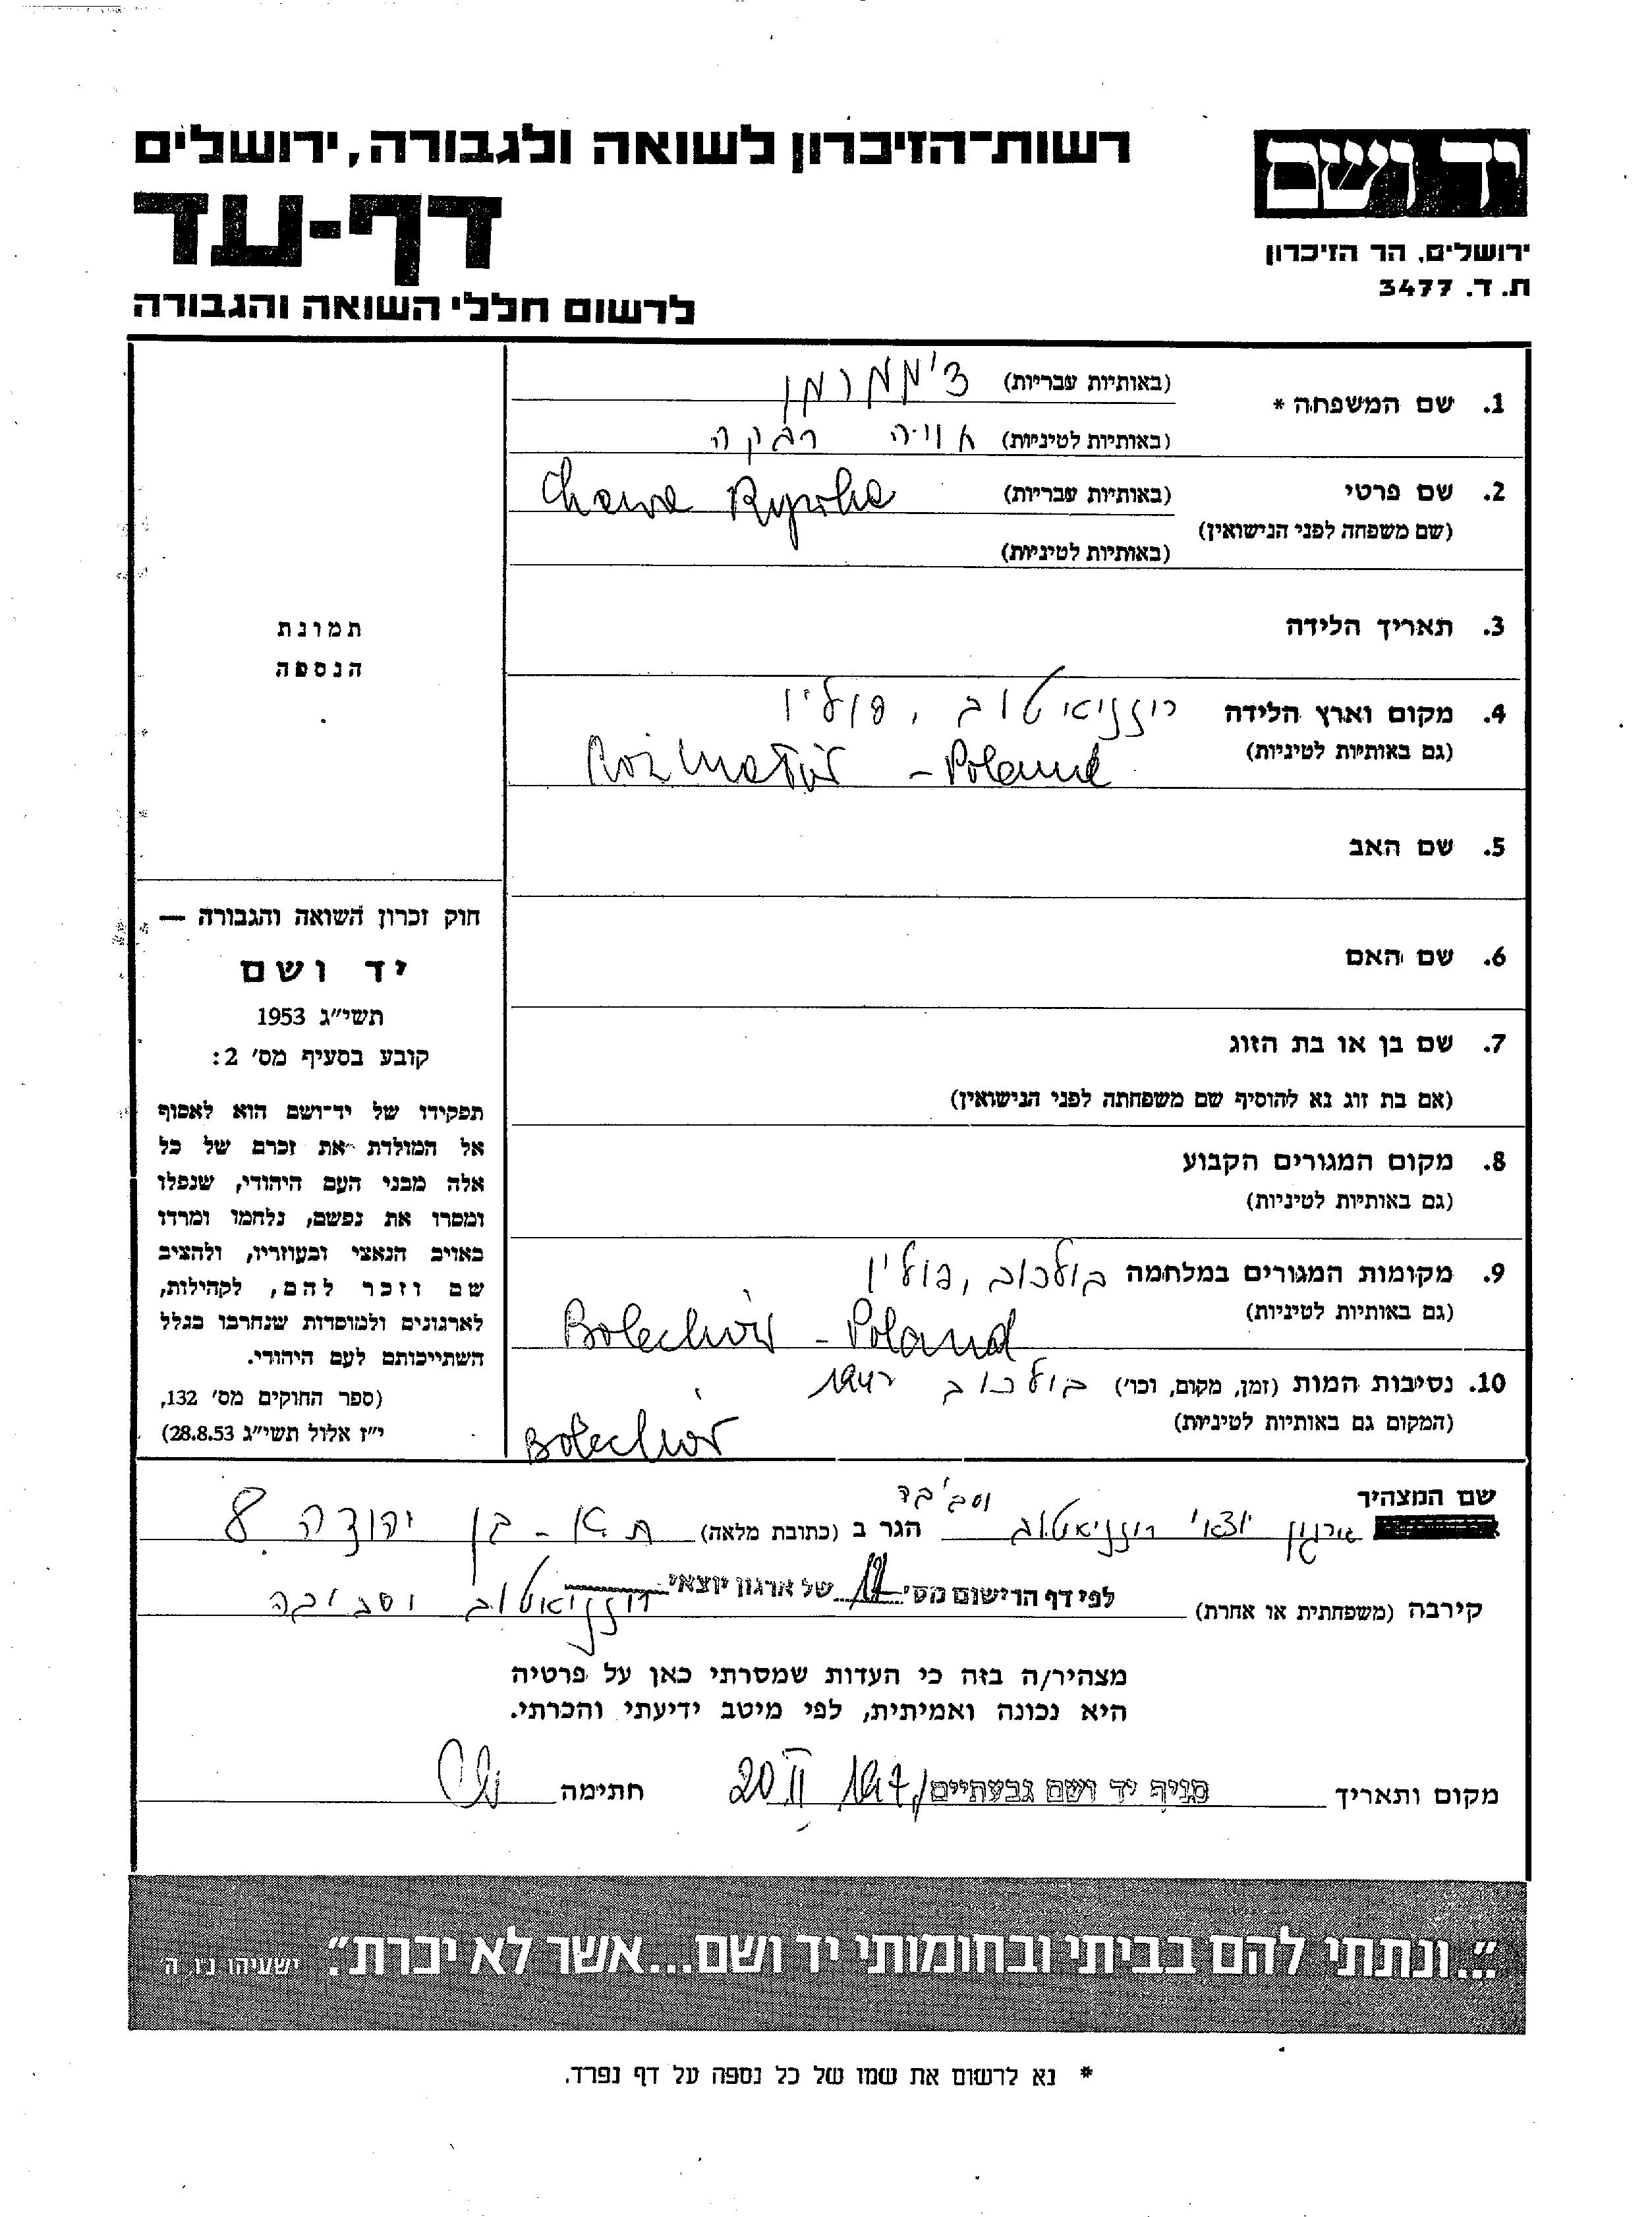 רשות־הזיכרון לשואה ולגבורה, ירושלים
דף-עד
לרשום חללי השואה והגבורה
יד ושם
ירושלים, הר הזיכרון
ת. ד. 3477
1. שם המשפחה *
(באותיות עבריות) צ'ממרמן
(באותיות לטיניות) רבקה
2. שם פרטי (באותיות עבריות) Chawa
(שם משפחה לפני הנישואין)
(באותיות לטיניות)
3. תאריך הלידה
4. מקום וארץ הלידה רוזניאטוב, פולין
(גם באותיות לטיניות) Rożniatów - Poland
5. שם האב
6. שם האם
7. שם בן או בת הזוג
(אם בת זוג נא להוסיף שם משפחתה לפני הנישואין)
8. מקום המגורים הקבוע
(גם באותיות לטיניות)
9. מקומות המגורים במלחמה בולכוב, פולין
(גם באותיות לטיניות) Bolechów - Poland
10. נסיבות המות (זמן, מקום, וכו') בולכוב
(המקום גם באותיות לטיניות) Bolechów
תמונת
הנספה
חוק זכרון השואה והגבורה —
יד ושם
תשי"ג 1953
קובע בסעיף מס' 2:
תפקידו של יד־ושם הוא לאסוף
אל המולדת את זכרם של כל
אלה מבני העם היהודי, שנפלו
ומסרו את נפשם, נלחמו ומרדו
באויב הנאצי ובעוזריו, ולהציב
שם וזכר להם, לקהילות,
לארגונים ולמוסדות שנחרבו בגלל
השתייכותם לעם היהודי.
(ספר החוקים מס' 132,
י"ז אלול תשי"ג 28.8.53)
שם המצהיר
ארגון יוצאי רוזניאטוב והסביבה הגר ב (כתובת מלאה) ת"א - בן יהודה 8
קירבה (משפחתית או אחרת) לפי דף הרישום מס' של ארגון יוצאי רוזניאטוב וסביבה
מצהיר/ה בזה כי העדות שמסרתי כאן על פרטיה
היא נכונה ואמיתית, לפי מיטב ידיעתי והכרתי.
מקום ותאריך סניף יד ושם גבעתיים 20 II חתימה
"...ונתתי להם בביתי ובחומותי יד ושם...אשר לא יכרת". ישעיהו נ"ו, ה'
* נא לרשום את שמו של כל נספה על דף נפרד.